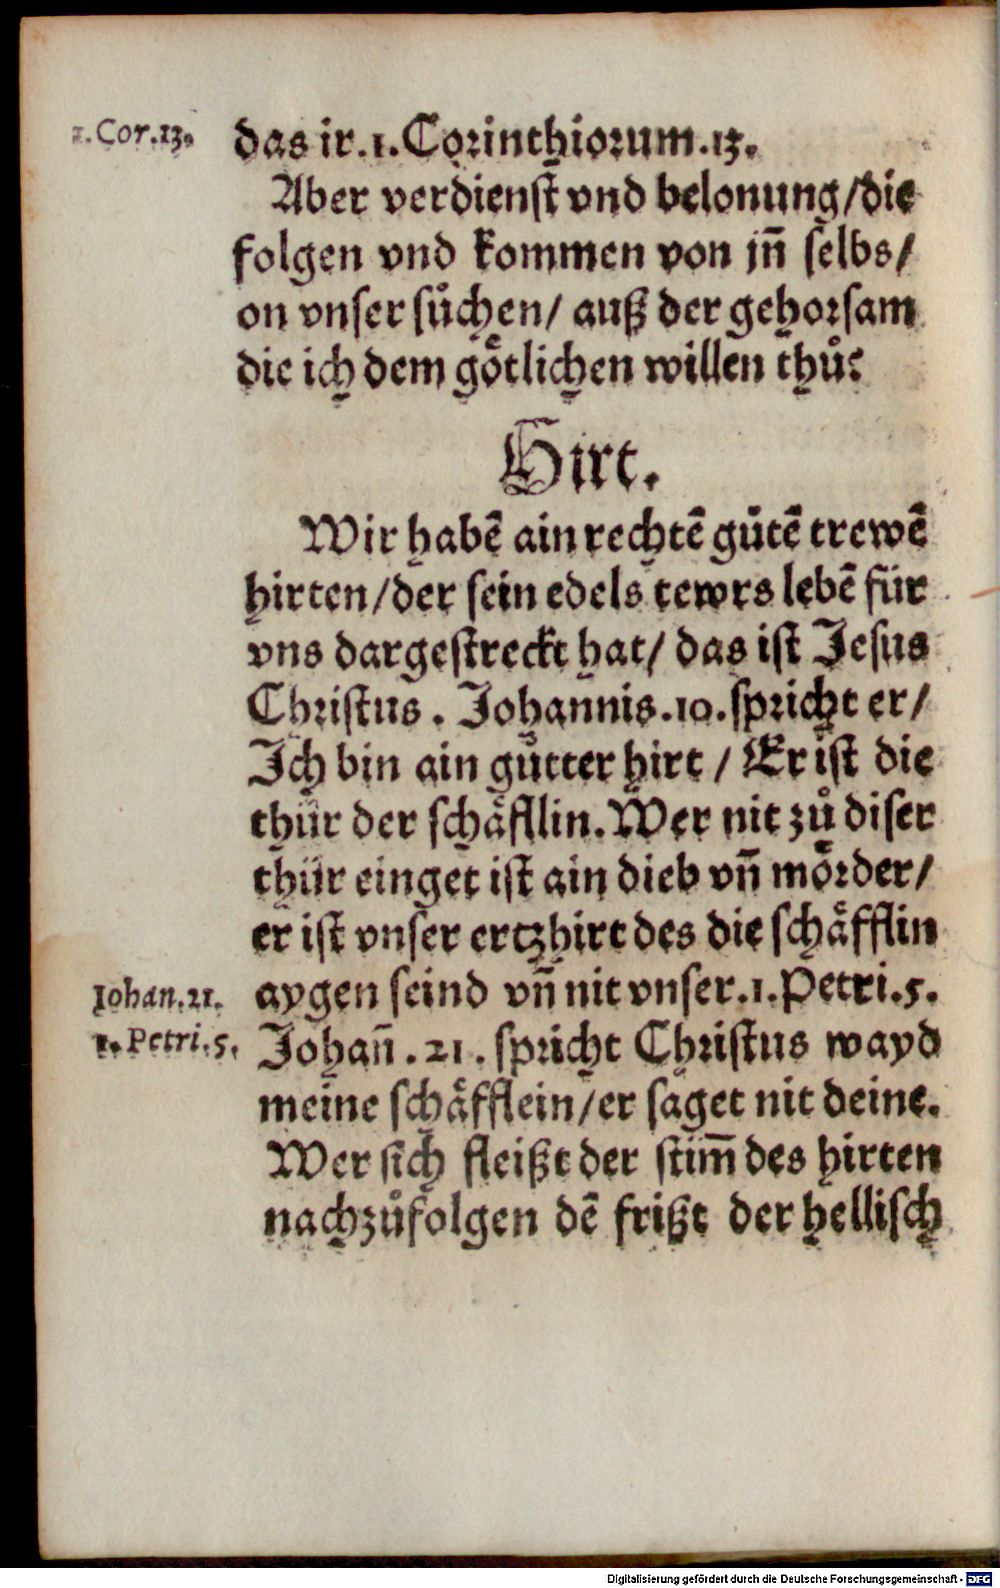 1.Cor.13.
das ir.1.Corinthiorum.13.
Aber verdienst vnd belonung/die
folgen vnd kommen von jn̄ selbs/
on vnser sůchen/ auß der gehorsam
die ich dem goͤtlichen willen thů.
Hirt.
Wir habē ain rechtē gůtē trewē
hirten/der sein edels tewrs lebē für
vns dargestreckt hat/ das ist Jesus
Christus. Johannis.10.spricht er/
Ich bin ain gůtter hirt / Er ist die
thür der schaͤfflin. Wer nit zů diser
thür einget ist ain dieb vn̄ moͤrder/
er ist vnser ertzhirt des die schaͤfflin
Iohan.21.
aygen seind vn̄ nit vnser.1.Petri.5.
1.Petri.5.
Johan̄.21. spricht Christus wayd
meine schaͤfflein/er saget nit deine.
Wer sich fleißt der stim̄ des hirten
nachzůfolgen dē frißt der hellisch
Digitalisierung gefördert durch die Deutsche Forschungsgemeinschaft - DFG